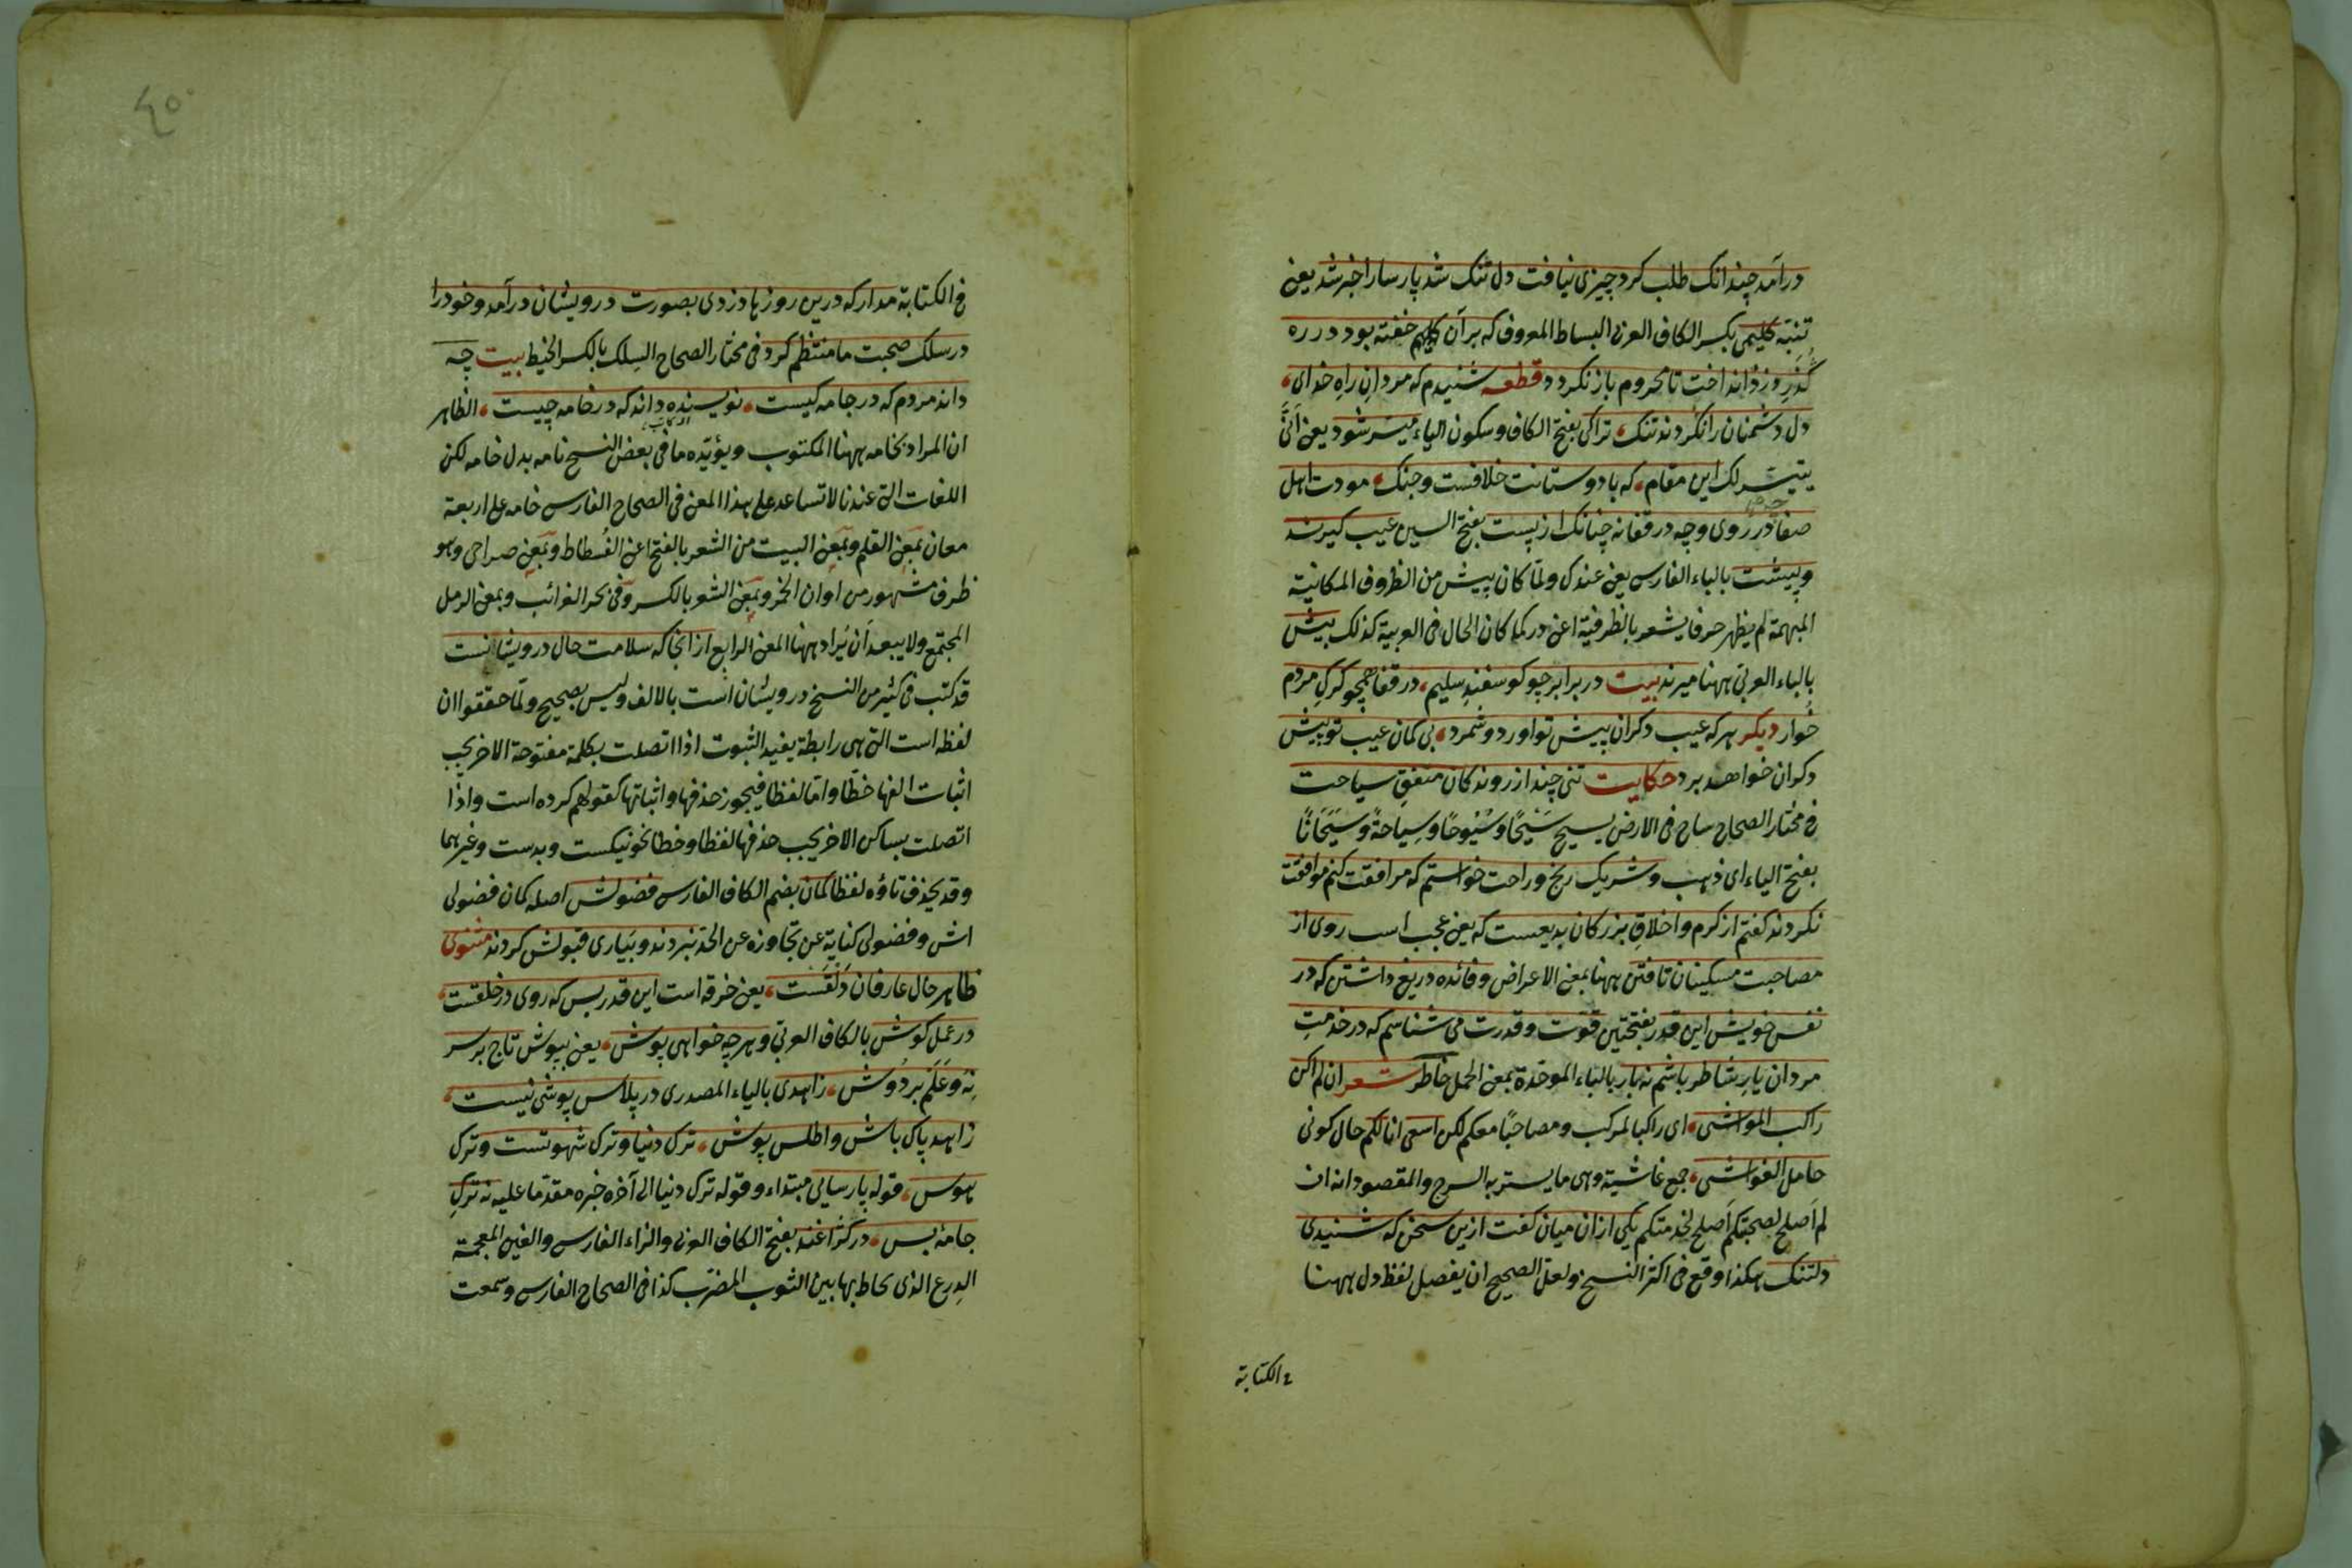 درآمد چندانک طلب کرد چیزی نیافت دل تنک شد پارسا را خبر شد یعنی
تنبّه کلیمی بکسر الکاف العربی البساط المعروف که بر آن کلیم خفته بود در ره
گذرِ دزد انداخت تا محروم باز نکردد قطعه شنیدم که مردانِ راهِ خدای
دل دشمنان را نکردند تنک ترا کَی بفتح الکاف وسکون الیاء میسّر شود یعنی انّی
یتیسّر لک این مقام که با دوستانت خلافست وجنک مودت اهل
صفا در روی وچه در قفا نه چنانک از پست بفتح السین عیب کیرند
وپیشت بالباء الفارسی یعنی عندک ولمّا کان پیش من الظروف المکانیّة
المبهمة لم یظهر حرفا یشعر بالظرفیة اعنی در کما کان الحال فی العربیة کذلک بیش
بالباء العربی ههنا میرند بیت در برابر چو کوسفندِ سلیم در قفا همچو کرکِ مردم
خُوار دیکر هرکه عیب دکران پیش تو آورد وشمرد بی کمان عیب تو پیش
دکران خواهد برد حکایت تنی چند از روندکان متفقِ سیاحت
فی مختار الصحاح ساح فی الارض یسیح سَیْحًا وسُیُوحًا وسِیاحةً وسَیَحَانًا
بفتح الیاء ای ذهب وشریک رنج وراحت خواستم که مرافقت کنم موافقت
نکردند کفتم از کرم واخلاقِ بزرکان بدیعست که یعنی عجب است روی از
مصاحبت مسکینان تافتن ههنا بمعنی الاعراض وفائده دریغ داشتن که در
نفسِ خویش این قدر بفتحتین قوّت وقدرت می شناسم که در خدمتِ
مردان یارِ شاطر باشم نه بار بالباء الموحدة بمعنی الحمل خاطر شعر ان لم اکن
راکب المواشی ای راکبا لمرکب ومصاحبًا معکم لکن اسعی انا لکم حال کونی
حامل الغواشی جمع غاشیة وهی ما یستر به السرج والمقصود انه ان
لم اَصلح لصحبتکم اَصلح لخدمتکم یکی از آن میان کفت ازین سخن که شنیدی
دلتنک هکذا وقع فی اکثر النسخ ولعل الصحیح ان یفصل لفظ دل ههنا
فی الکتابة
٤٥
فی الکتابة مدار که درین روزها دزدی بصورت درویشان درآمد وخود را
در سلک صحبت ما منتظم کرد فی مختار الصحاح السِلک بالکسر الخیط بیت چه
دانند مردم که در جامه کیست نویسنده داند که در خامه چیست الظاهر
ان المراد بخامه ههنا المکتوب ویؤیّده ما فی بعض النسخ نامه بدل خامه لکن
اللغات التی عندنا لا تساعد علی هذا المعنی فی الصحاح الفارسی خامه علی اربعة
معان بمعنی القلم وبمعنی البیت من الشعر بالفتح اعنی الفُسطاط وبمعنی صراحی وهو
ظرف مشهور من اوان الخمر وبمعنی الشعر بالکسر وفی بحر الغرائب وبمعنی الرمل
المجتمع ولا یبعد اَن یُراد ههنا المعنی الرابع از آنجا که سلامت حال درویشانست
قد کتب فی کثیر من النسخ درویشان است بالالف ولیس بصحیح ولمّا حققوا ان
لفظه است التی هی رابطة یفید الثبوت اذا اتصلت بکلمة مفتوحة الاخر یجب
اثبات الفها خطًّا وامّا لفظا فیجوز حذفها واثباتها کقولهم کرده است واذا
اتصلت بساکن الاخر یجب حذفها لفظا وخطا نحو نیکست وبدست وغیرهما
وقد یحذف تاؤه لفظا کمان بضم الکاف الفارسی فضولش اصله کمان فضولی
اش وفضولی کنایة عن تجاوزه عن الحدّ نبردند وبیاری قبولش کردند مثنوی
ظاهر حال عارفان دَلَقَست یعنی خرقه است این قدر بس که روی در خلقست
در عمل کوش بالکاف العربی وهرچه خواهی پوش یعنی بپوش تاج بر سر
نِهْ وعَلَم بر دُوش زاهدی بالیاء المصدری در پلاس پوشی نیست
زاهد پاک باش واطلس پوش ترک دنیا وترک شهوتست وترک
هوس قوله پارسایی مبتداء وقوله ترک دنیا الی آخره خبره مقدّما علیه نه ترکِ
جامه بس در کژاغند بفتح الکاف العربی والزاء الفارسی والغین المعجمة
الدِرع الذی یحاط بها بین الثوب المضرّب کذا فی الصحاح الفارسی وسمعت